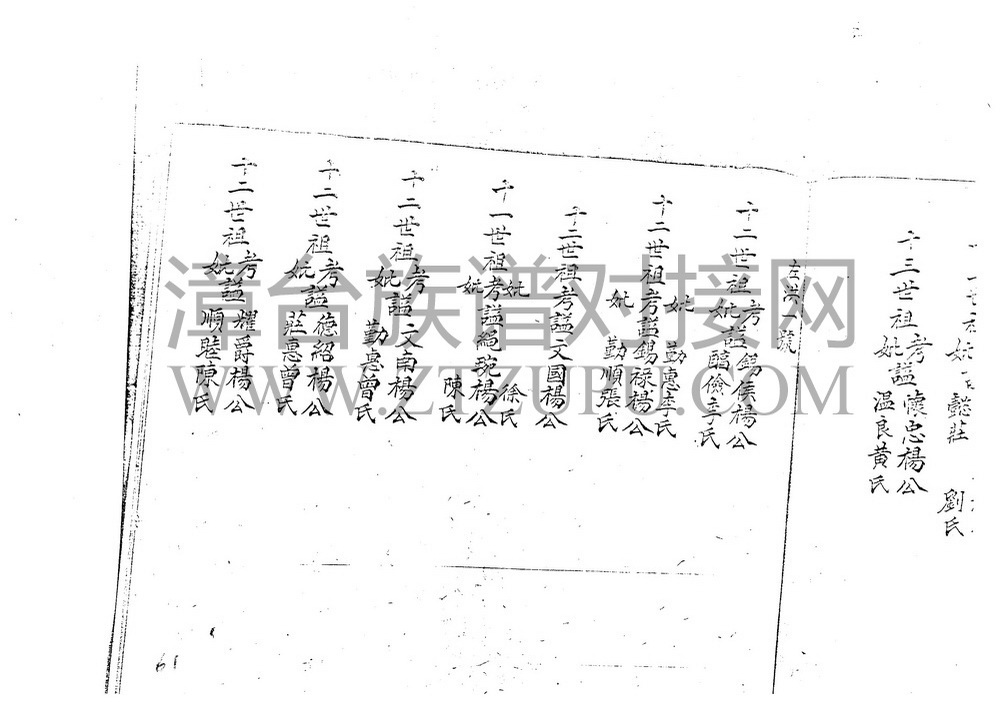 妣 懿莊 劉氏
十三世祖考妣謚 懷忠楊公
溫良黃氏
左 一號
十二世祖考妣謚 錫侯楊公
李氏
妣 勤惠李氏
十二世祖考謚錫祿楊公
妣 勤順張氏
十二世祖考謚文國楊公
妣 徐氏
十一世祖考謚 楊公
妣 陳氏
十二世祖考妣謚 文南楊公
勤惠曾氏
十二世祖考妣謚 德紹楊公
莊惠曾氏
十二世祖考妣謚 耀爵楊公
順陸陳氏
61
漳台族谱对接网
WWW.ZTZUPU.COM